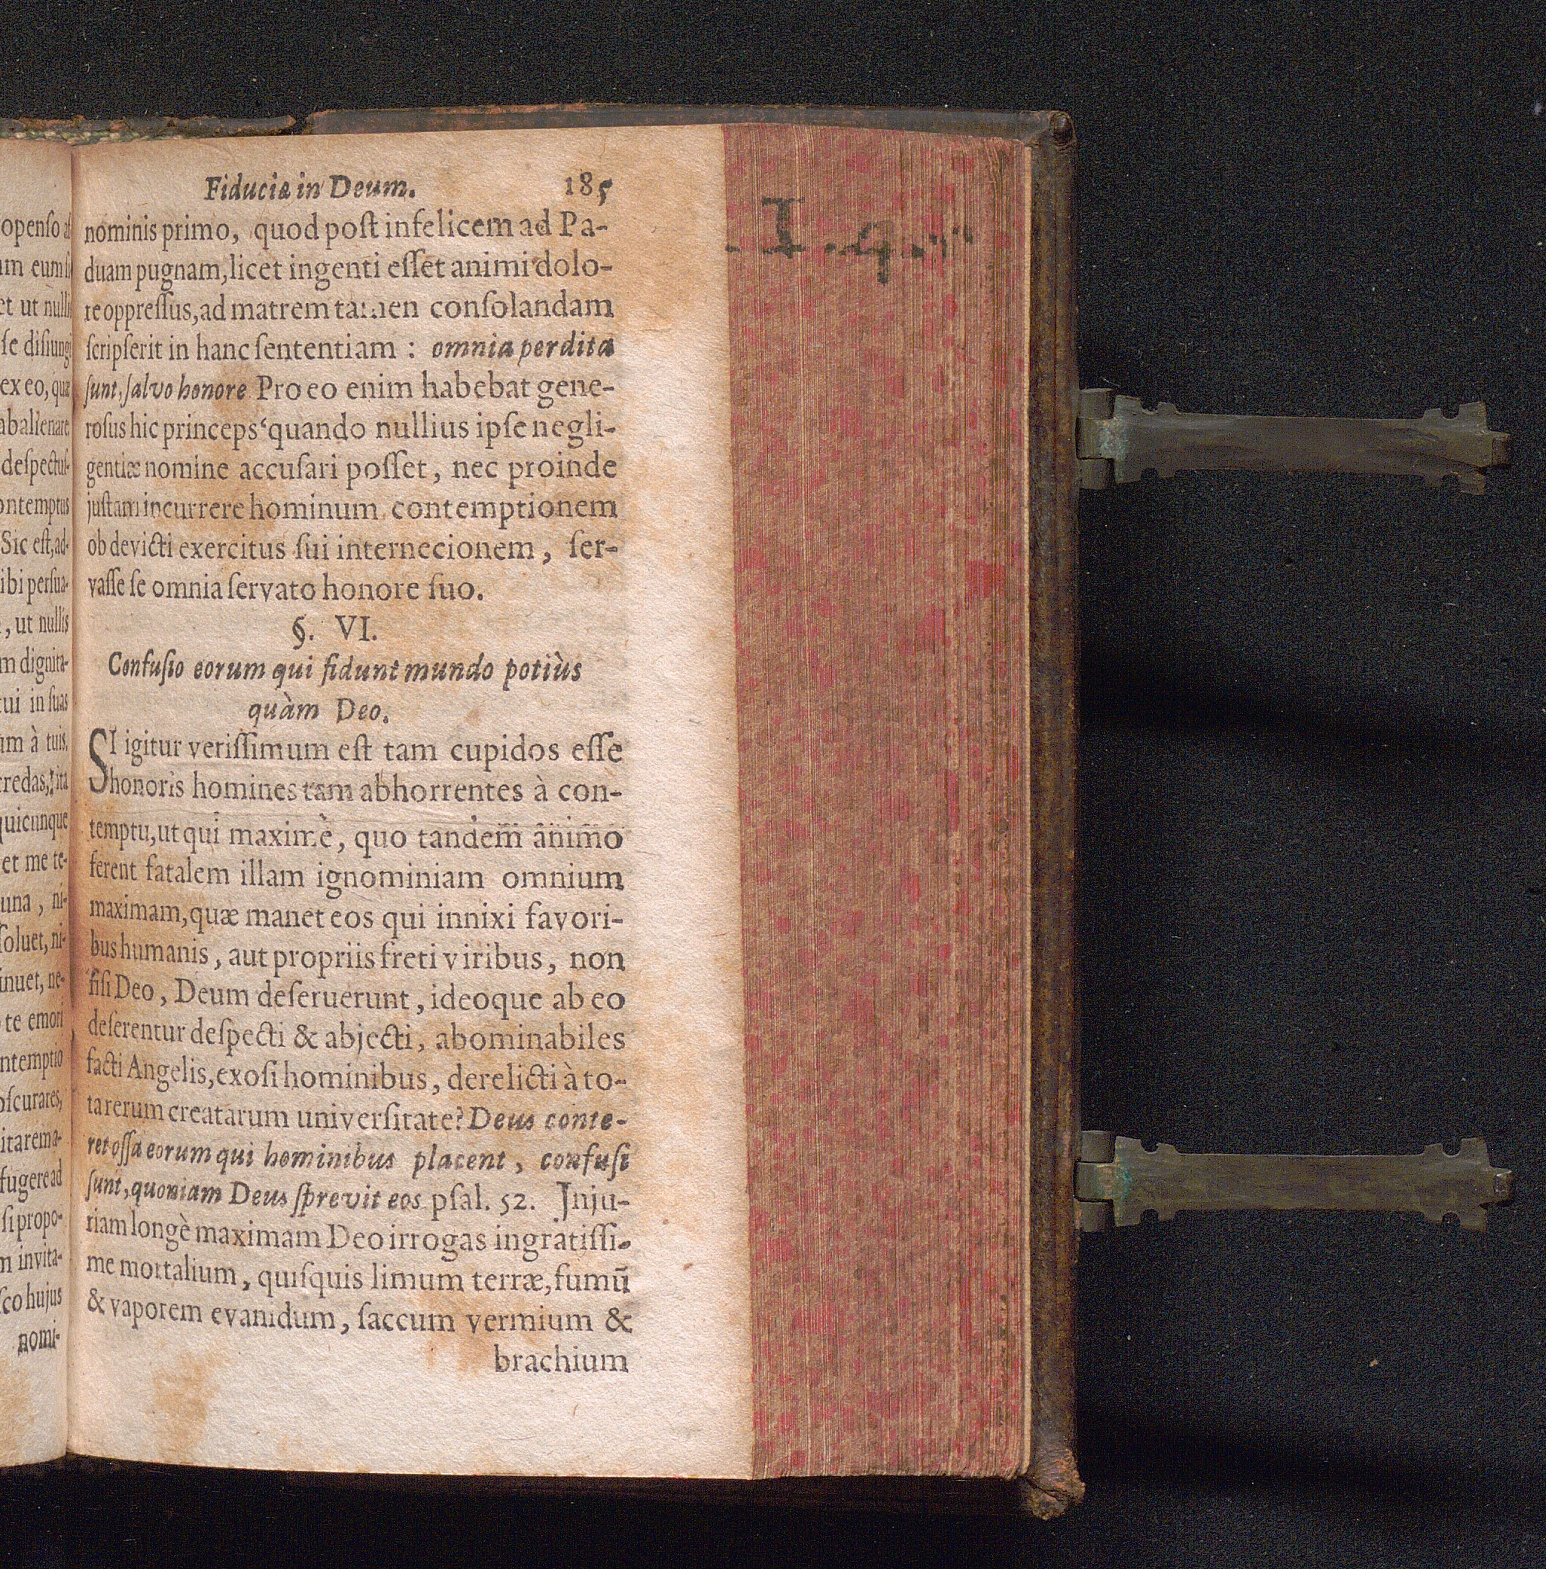 Fiduciæ in Deum. 185
nominis primo, quod post infelicem ad Pa-
duam pugnam, licet ingenti esset animi dolo-
re oppressus, ad matrem tamen consolandam
scripserit in hanc sententiam : omnia perdita
sunt, salvo honore Pro eo enim habebat gene-
rosus hic princeps quando nullius ipse negli-
gentiæ nomine accusari posset, nec proinde
justam incurrere hominum contemptionem
ob devicti exercitus sui internecionem, ser-
vasse se omnia servato honore suo.
§. VI.
Confusio eorum qui fidunt mundo potiùs
quàm Deo.
SI igitur verissimum est tam cupidos esse
honoris homines tam abhorrentes à con-
temptu, ut qui maximè, quo tandem animo
ferent fatalem illam ignominiam omnium
maximam, quæ manet eos qui innixi favori-
bus humanis, aut propriis freti viribus, non
fisi Deo, Deum deseruerunt, ideoque ab eo
deserentur despecti & abjecti, abominabiles
facti Angelis, exosi hominibus, derelicti à to-
ta rerum creatarum universitate? Deus conte-
ret ossa eorum qui hominibus placent, confusi
sunt, quoniam Deus sprevit eos psal. 52. Inju-
riam longè maximam Deo irrogas ingratissi-
me mortalium, quisquis limum terræ, fumū
& vaporem evanidum, saccum vermium &
brachium
openso
um eum
et ut nulli
se disiungi
ex eo, quæ
abalienare
despectus-
ontemptus
Sic est, ad-
ibi persua-
, ut nullis
m dignita-
tui in suas
um à tuis,
credas, ita
quicunque
et me te-
una, ni-
soluet, ni-
inuet, ne-
te emori
ntemptio
obscurares,
itarema-
fugere ad
si propo-
m invita-
sco hujus
nomi-